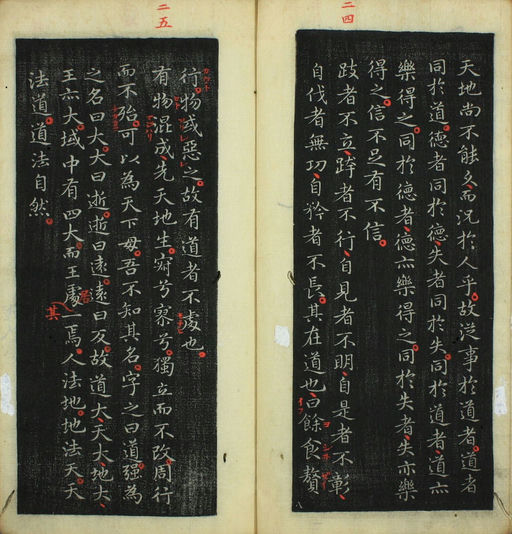 二四
天地尚不能久而況於人乎故従事於道者道者
同於道德者同於德失者同於失同於道者道亦
樂得之同於德者德亦樂得之同於失者失亦樂
得之信不足有不信
跂者不立跨者不行自見者不明自是者不彰
自伐者無功自矜者不長其在道也曰餘食贅
二五
行物或惡之故有道者不處也
有物混成先天地生寂兮寥兮獨立而不改周行
而不殆可以為天下母吾不知其名字之曰道強為
之名曰大大曰逝逝曰遠遠曰反故道大天大地大
王亦大域中有四大而王處一焉人法地地法天天
其
法道道法自然